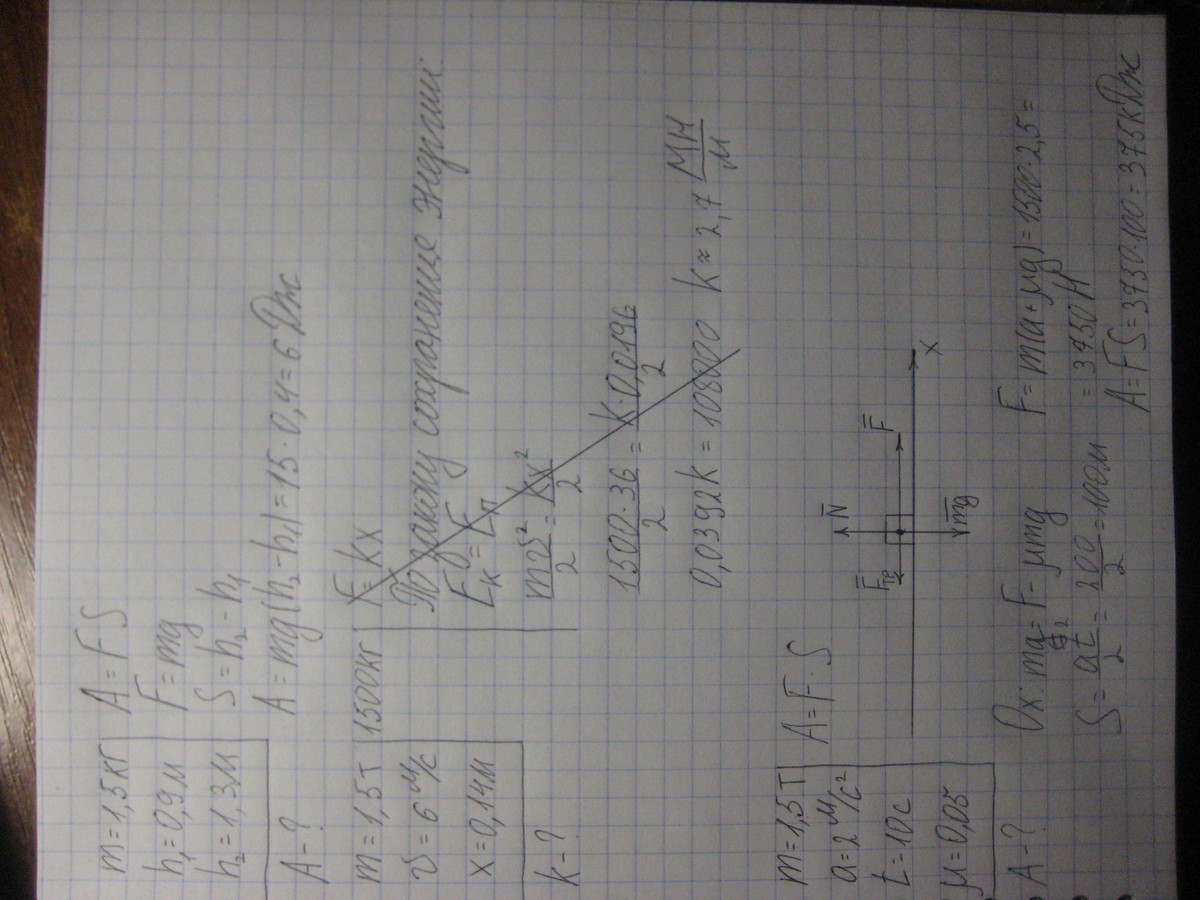 m = 1,5кг
h₁ = 0,9м
h₂ = 1,3м
A - ?
A = FS
F = mg
S = h₂ - h₁
A = mg(h₂ - h₁) = 15 · 0,4 = 6 Дж
m = 1,5т
1500кг
υ = 6 м/с
x = 0,14м
k - ?
F = kx
По закону сохранение энергии:
Eк = Eп
mυ²/2 = kx²/2
1500·36/2 = k·0,0196/2
0,0392k = 108000 k ≈ 2,7 МН/м
m = 1,5т
a = 2 м/с²
t = 10с
μ = 0,05
A - ?
A = F · S
N
Fтр
F
mg
x
Ox: ma = F - μmg
S = at²/2 = 200/2 = 100м
F = m(a + μg) = 1500·2,5 =
= 3750 Н
A = FS = 3750·100 = 375кДж